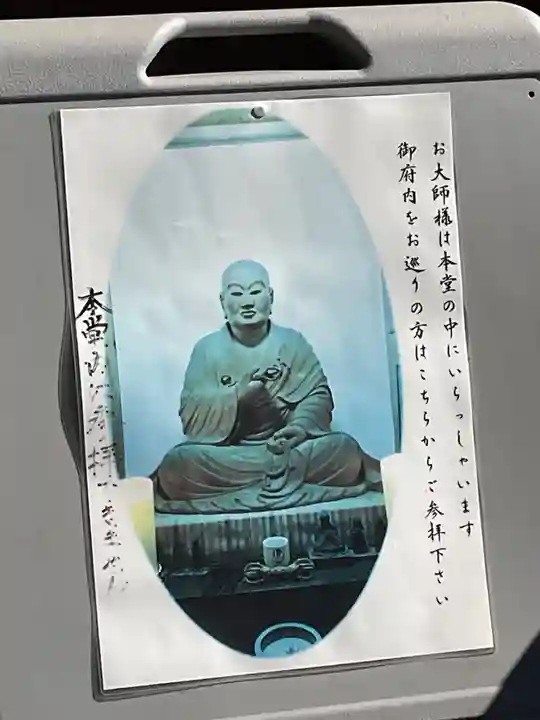 お大師様は本堂の中にいらっしゃいます
御府内をお巡りの方はこちらからご参拝下さい
本堂内〃参拝できません